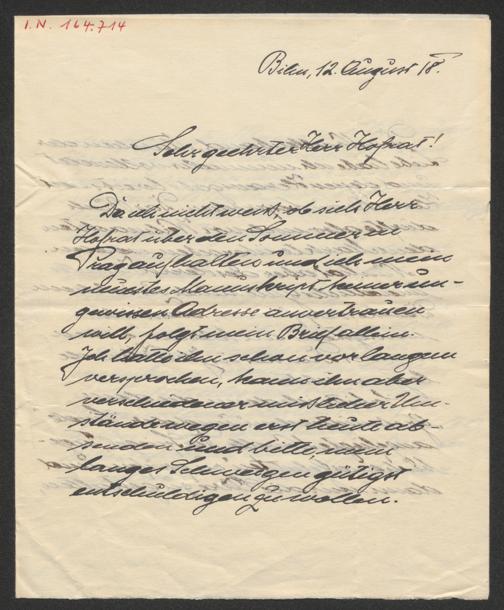 I.N. 164.714
Bilin, 12. August 18.
Sehr geehrter Herr Hofrat!
Da ich nicht weiss, ob sich Herr
Hofrat über den Sommer in
Prag aufhalten und ich mein
neuestes Manuskript keiner un-
gewissen Adresse anvertrauen
will, folgt mein Brief allein.
Ich hatte ihn schon vor langem
versprochen, kann ihn aber
verschiedener misslicher Um-
stände wegen erst heute ab-
senden und bitte, mein
langes Schweigen gütigst
entschuldigen zu wollen.